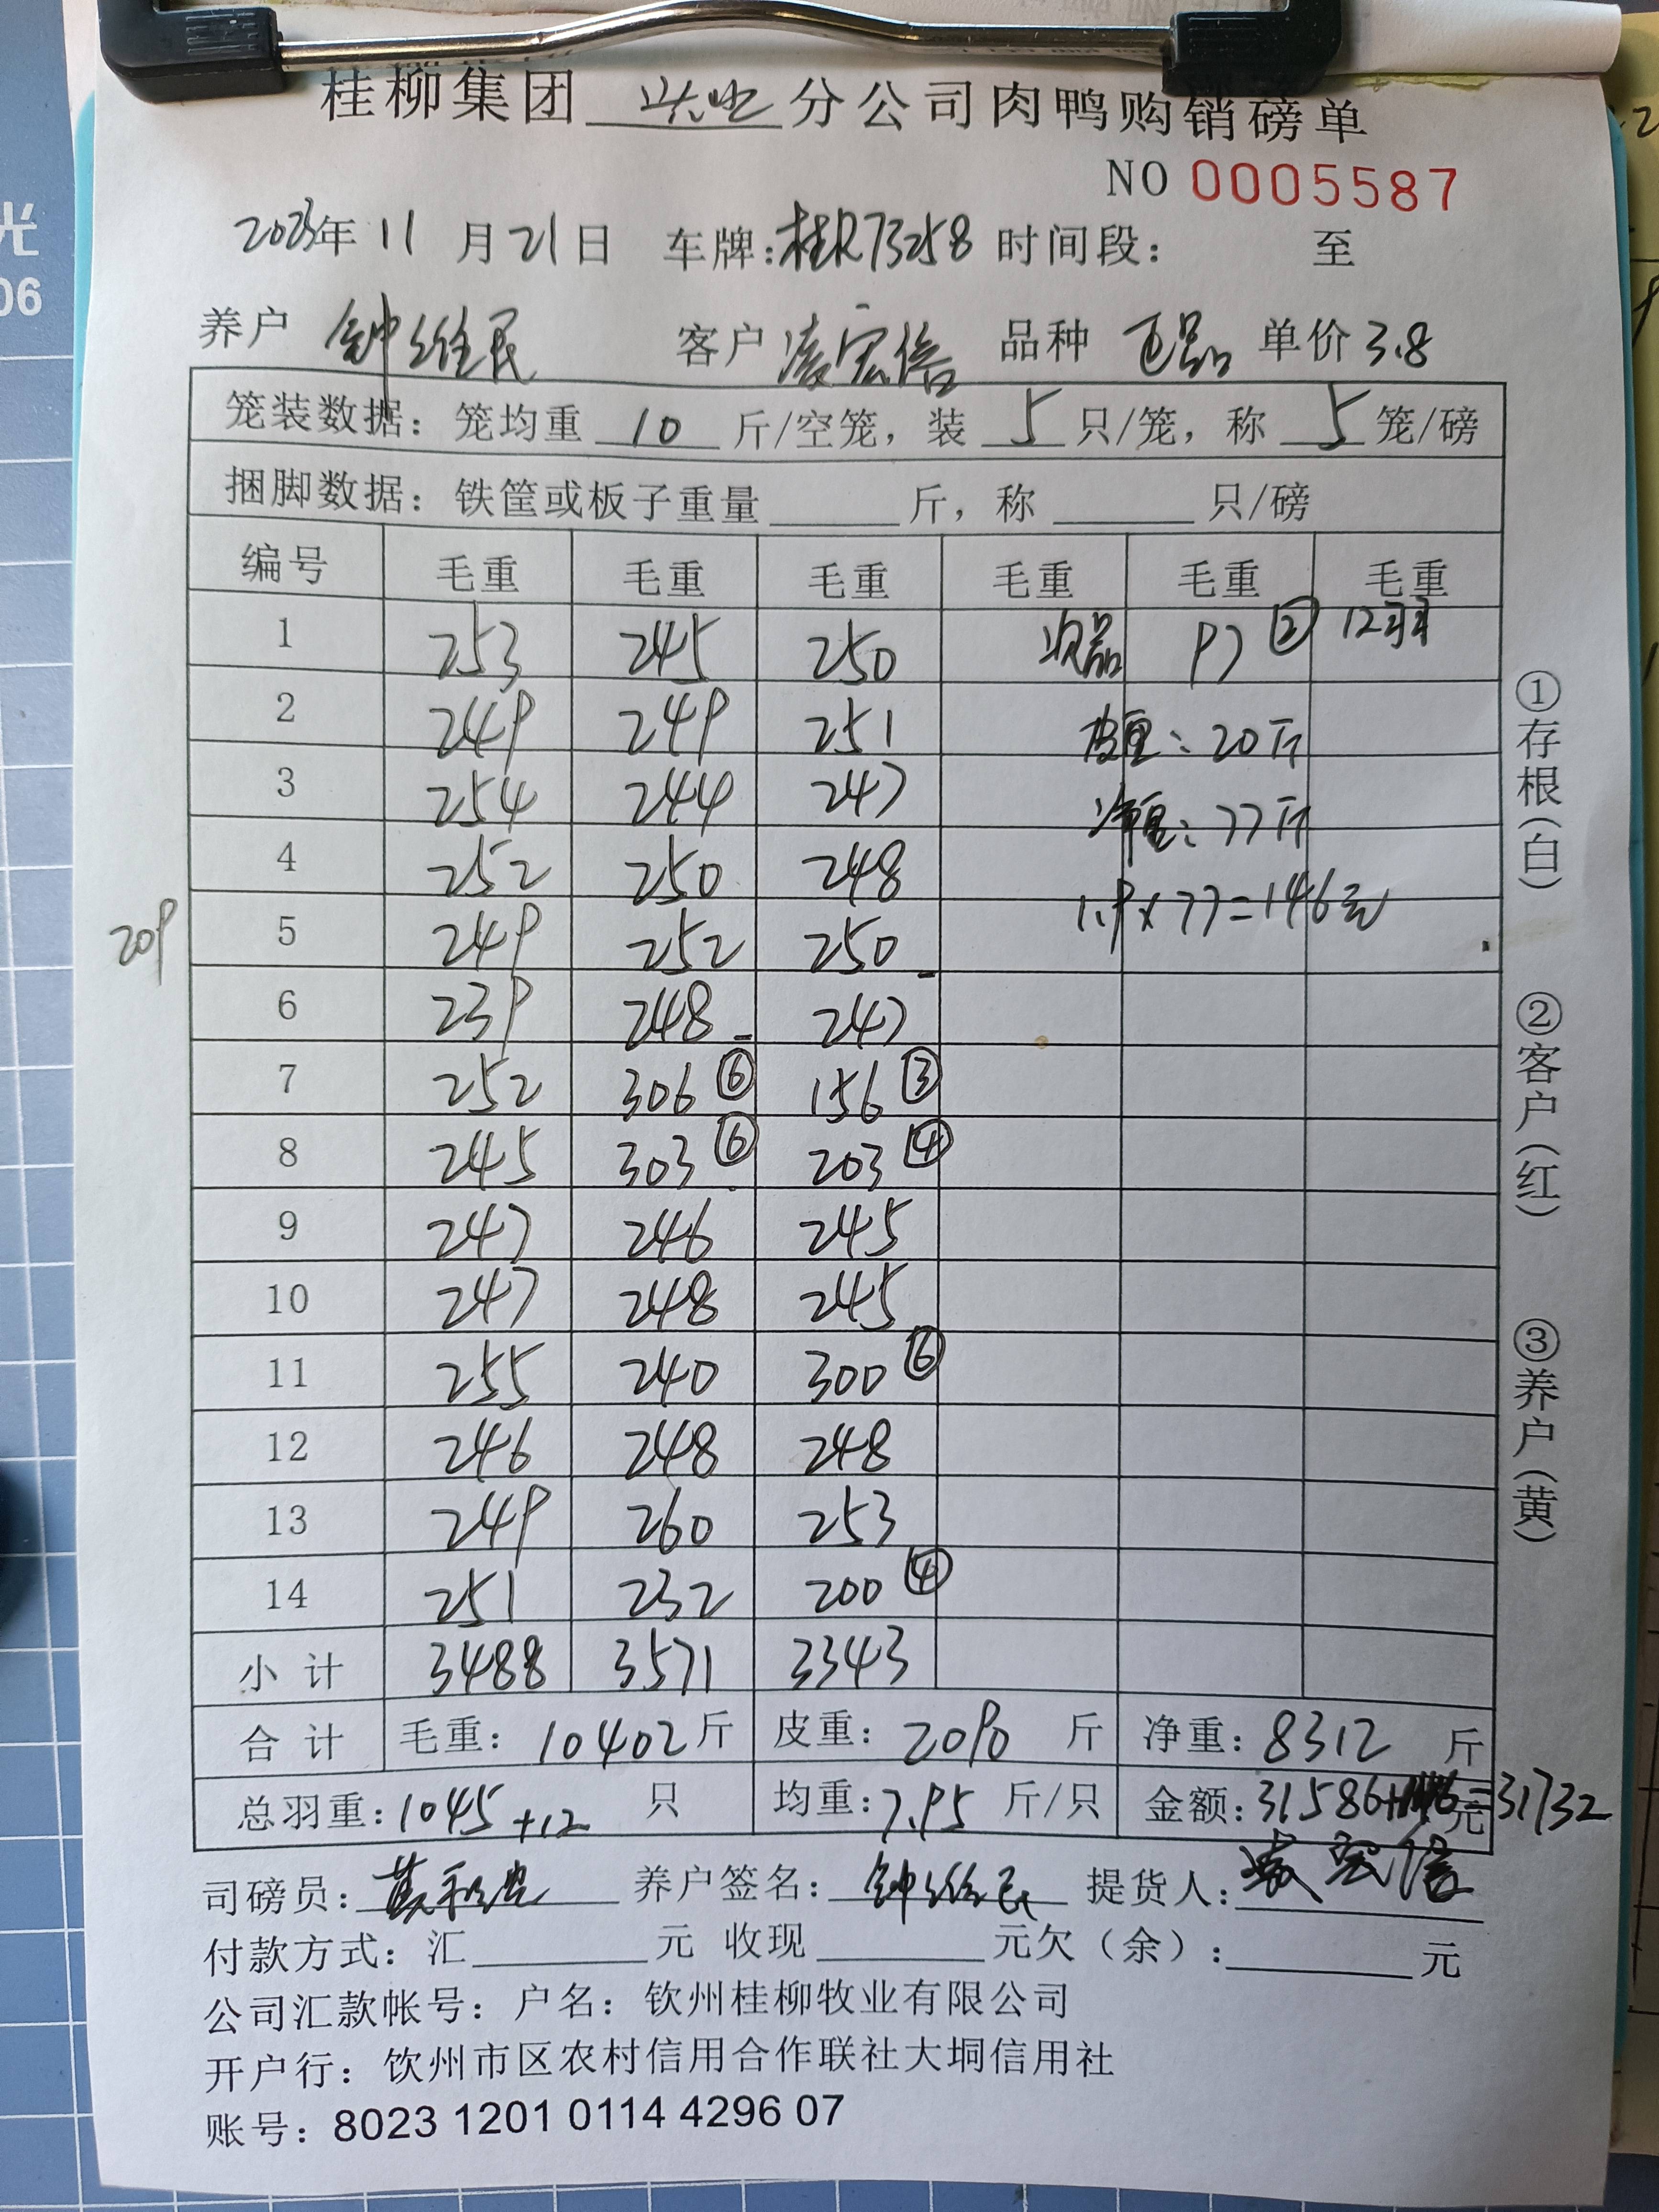 桂柳集团 分公司肉鸭购销磅单
NO 0005587
2023年 11 月 21 日 车牌:桂R73258 时间段: 至
养户 钟维民 客户 凌宏信 品种 正品 单价 3.8
笼装数据: 笼均重 10 斤/空笼, 装 5 只/笼, 称 5 笼/磅
捆脚数据: 铁筐或板子重量 斤, 称 只/磅
编号 毛重 毛重 毛重 毛重 毛重 毛重
1 253 245 250 次品 97 ② 12羽
2 249 249 251 皮重: 20斤
3 254 244 247 净重: 77斤
4 252 250 248
1.9×77=146元
5 249 252 250
209
6 239 248 247
7 252 306 ⑥ 156 ③
8 245 303 ⑥ 203 ④
9 247 246 245
10 247 248 245
11 255 240 300 ⑥
12 246 248 248
13 249 260 253
14 251 232 200 ④
小计 3488 3571 3343
合计 毛重: 10402 斤 皮重: 2090 斤 净重: 8312 斤
总羽重: 1045+12 只 均重: 7.95 斤/只 金额: 31586+146元=31732
司磅员: 养户签名: 钟维民 提货人: 凌宏信
付款方式: 汇 元 收现 元欠(余): 元
公司汇款帐号: 户名: 钦州桂柳牧业有限公司
开户行: 钦州市区农村信用合作联社大垌信用社
账号: 8023 1201 0114 4296 07
①存根(白) ②客户(红) ③养户(黄)
光
06